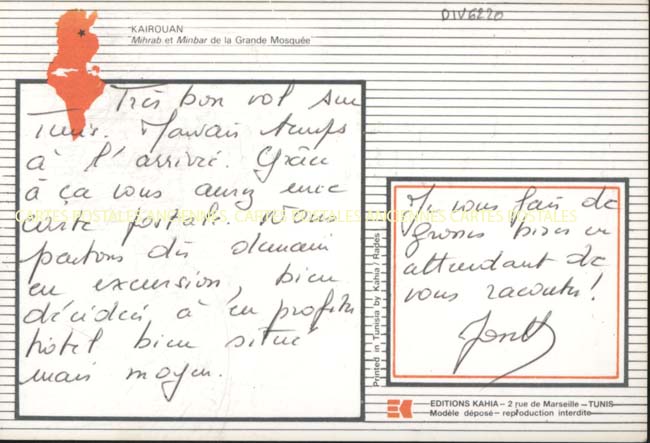 DIV6220
KAIROUAN
Mihrab et Minbar de la Grande Mosquée
Très bon vol sur
Tunis. Mauvais temps
à l'arrivée. Grâce
à ça vous aurez une
carte postale. Nous
partons dès demain
en excursion, bien
décidés à en profiter
hôtel bien situé
mais moyen.
CARTES POSTALES ANCIENNES CARTES POSTALES ANCIENNES CARTES POSTALES
Printed in Tunisia by Kahia / Rades
Je vous fais de
grosses bises en
attendant de
vous raconter!
EDITIONS KAHIA – 2 rue de Marseille – TUNIS
Modèle déposé – reproduction interdite